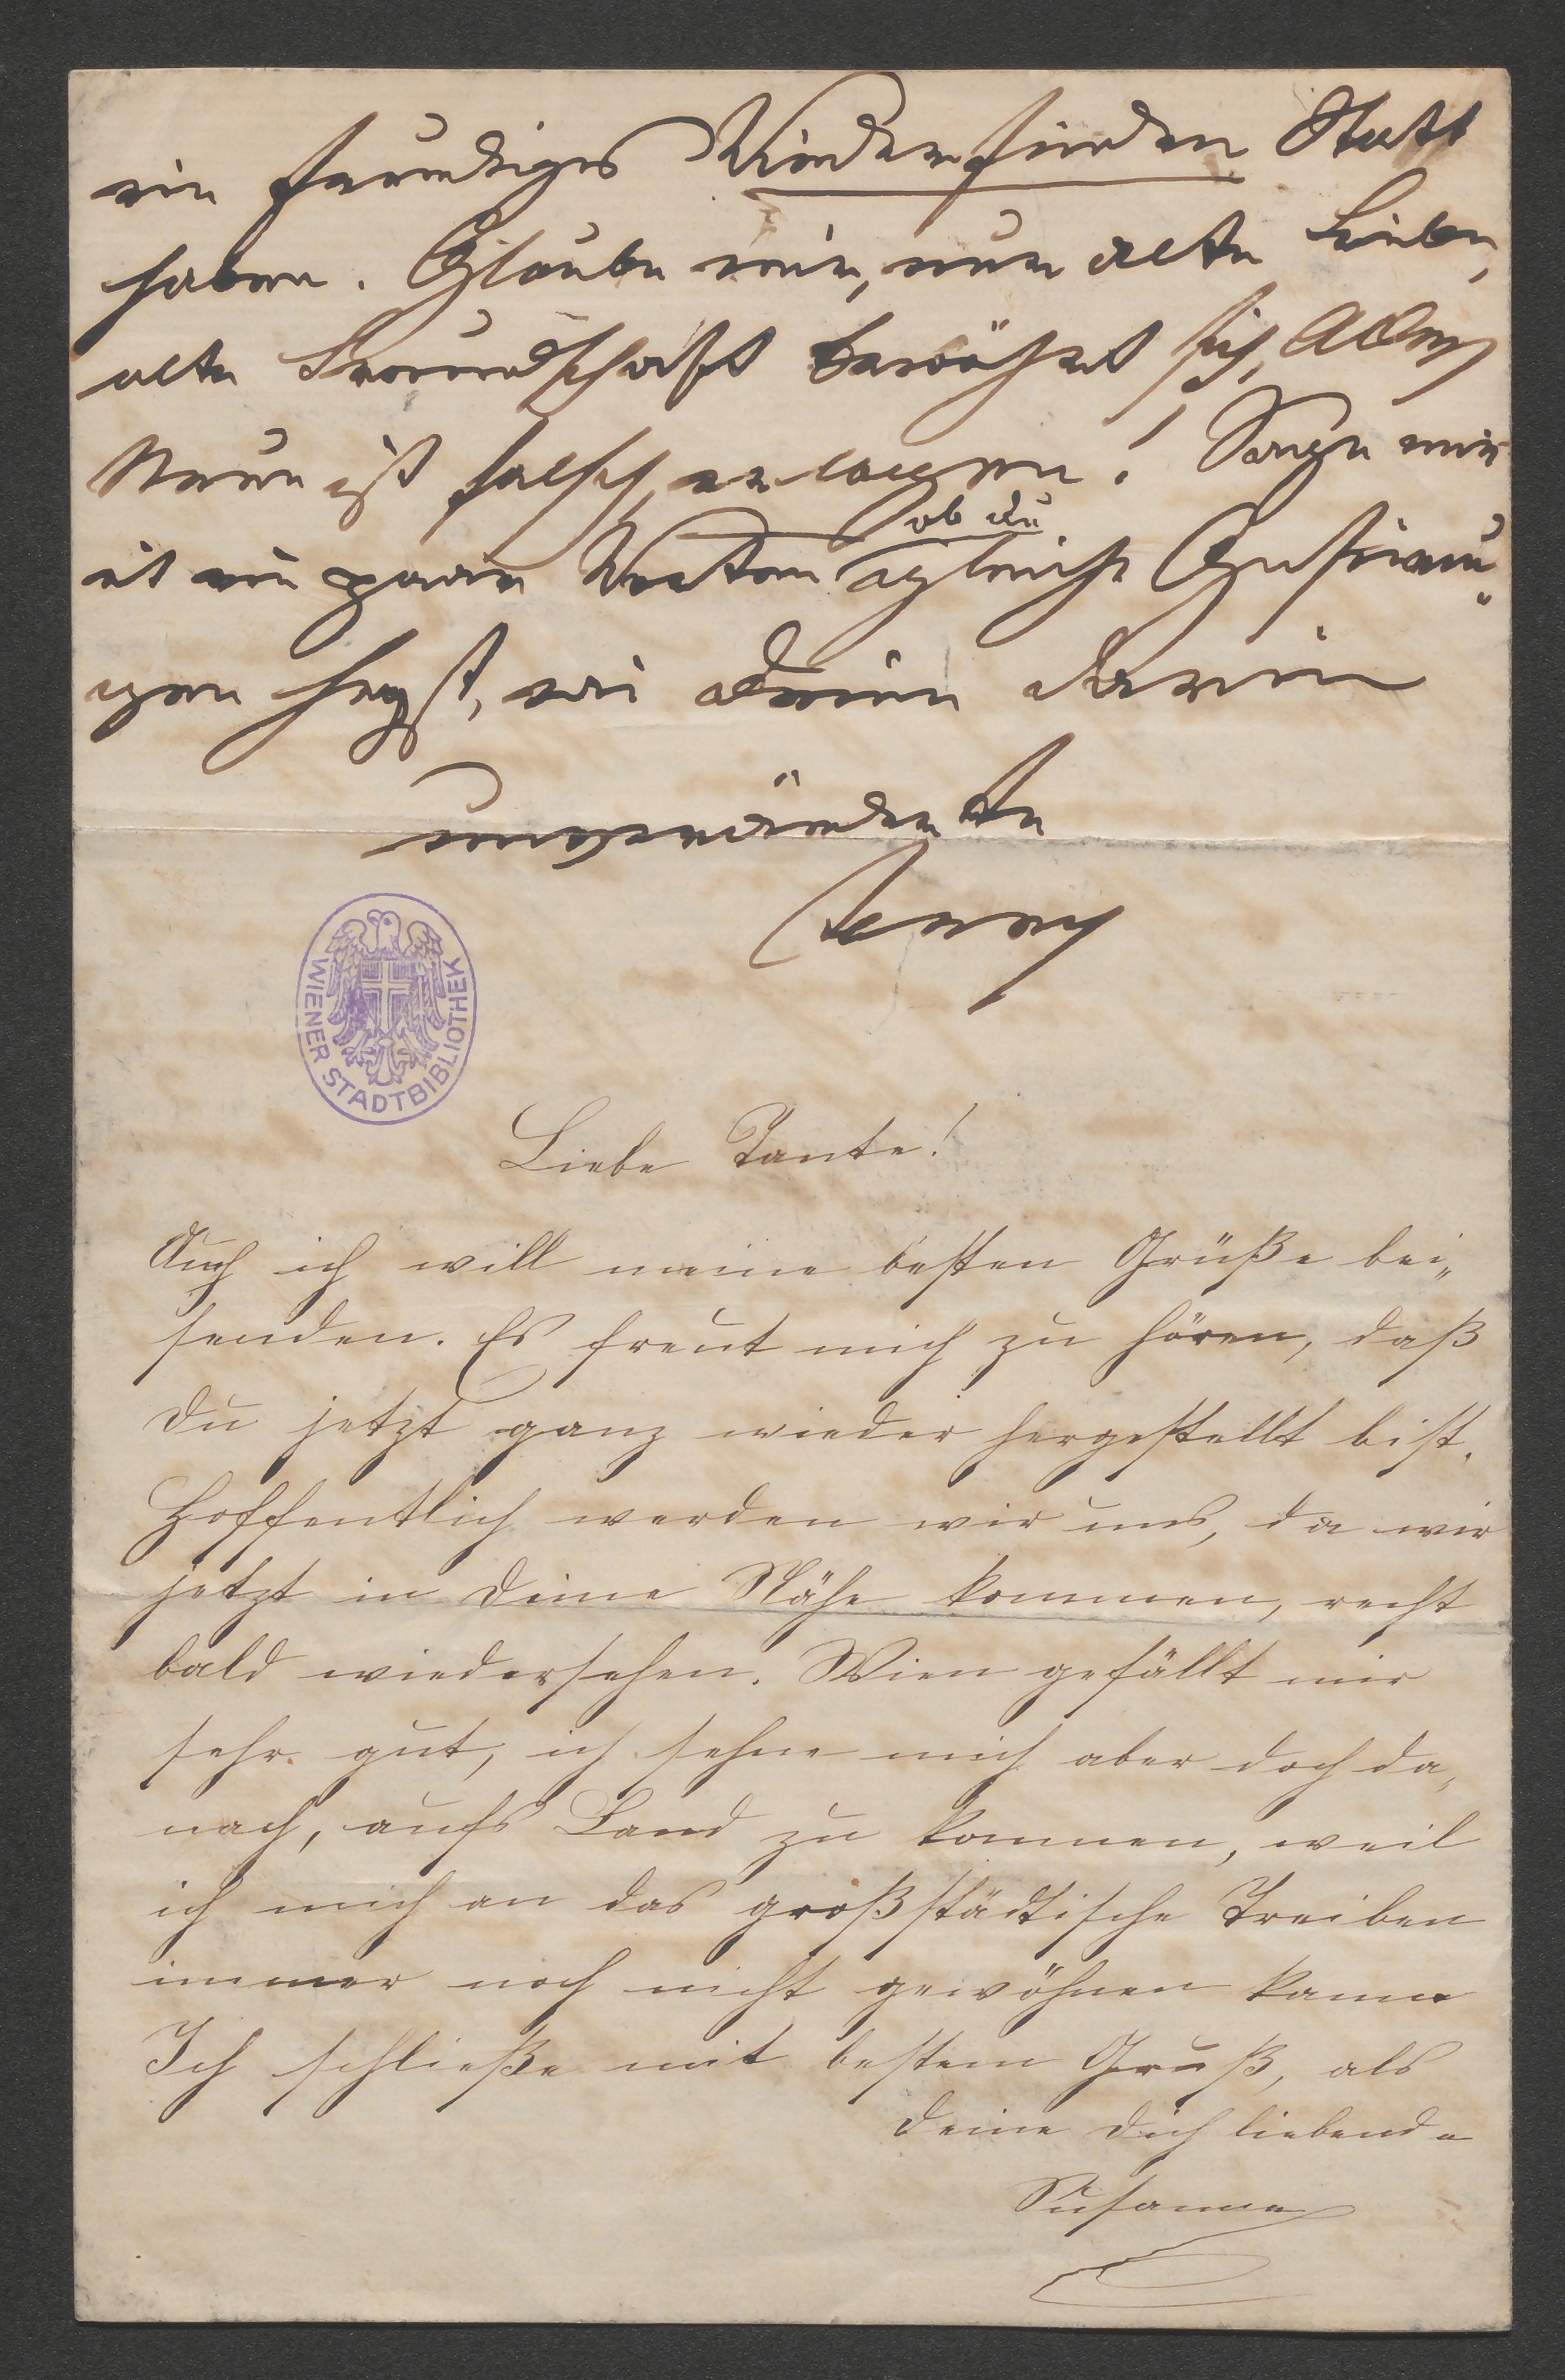 ein freudiges Wiederfinden Statt
haben. Glaube mir, nur alte Liebe,
alte Freundschaft bewährt sich, Alles
Neue ist falsch, erlogen! Sage mir
in ein paar Worten ob du
gleiche Gesinnun„
gen hegst, wie Deine Deine
unveränderte
Jenny
WIENER STADTBIBLIOTHEK
Liebe Tante!
Auch ich will meine besten Grüße bei„
senden. Es freut mich zu hören, daß
du jetzt ganz wieder hergestellt bist.
Hoffentlich werden wir uns, da wir
jetzt in deine Nähe kommen, recht
bald wiedersehen. Wien gefällt mir
sehr gut, ich sehne mich aber doch da„
nach, aufs Land zu kommen, weil
ich mich an das großstädtische Treiben
immer noch nicht gewöhnen kann
Ich schließe mit bestem Gruß, als
deine dich liebende
Susanne